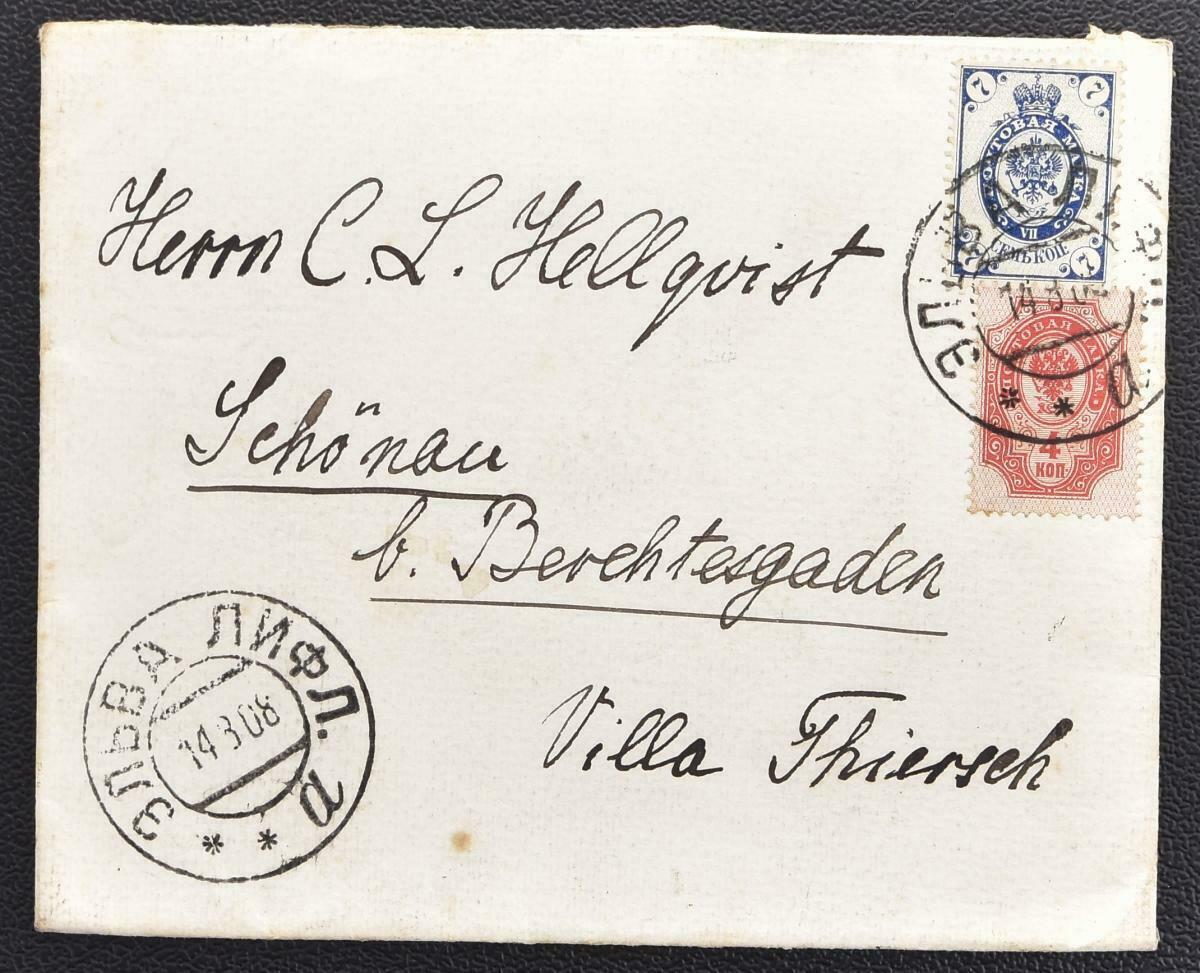 7 7
ПОЧТОВАЯ МАРКА
VII
СЕМЬ КОП.
7
14 3 08
ПОЧТОВАЯ МАРКА
4
КОП
Herrn C. L. Hellqvist
Schönau
b. Berchtesgaden
Villa Thiersch
ЭЛЬВА ЛИФЛ.
14 3 08
a